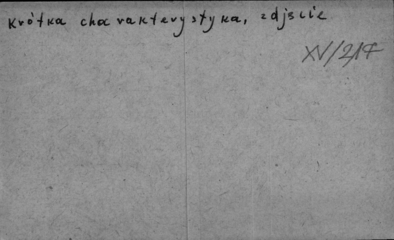 Krótka charakterystyka, zdjscie
XV/217